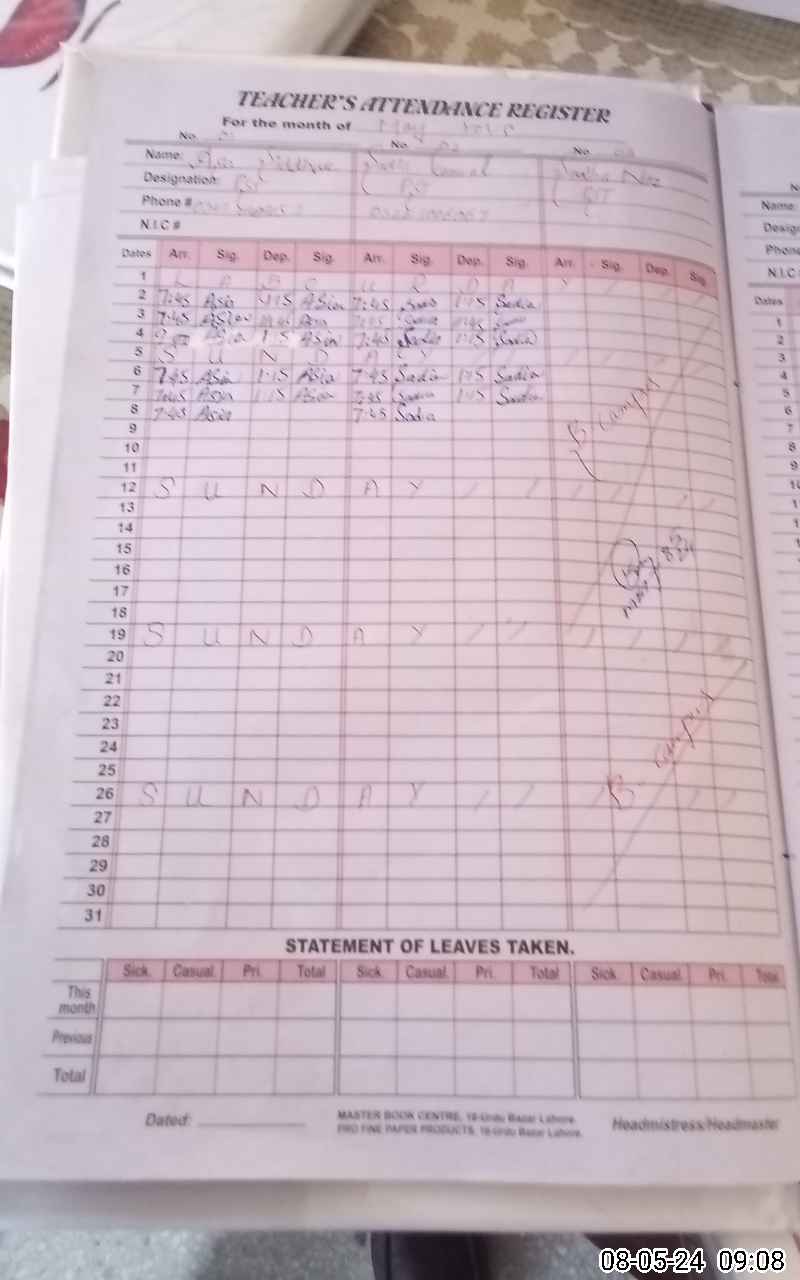 TEACHER'S ATTENDANCE REGISTER
For the month of May
No. No. 02 No.
Name: Asia Sadia Sadia Naz
Designation: PST PST PST
Phone #
N.I.C #
Dates Arr. Sig. Dep. Sig. Arr. Sig. Dep. Sig. Arr. Sig. Dep. Sig.
1 L A B O U R D A Y
2 7:45 Asia 1:15 Asia 7:45 Sadia 1:15 Sadia
3 7:45 Asia Asia 7:45 Sadia Sadia
4 Asia 1:15 Asia 7:45 Sadia 1:15 Sadia
5 S U N D A Y
6 7:45 Asia 1:15 Asia 7:45 Sadia 1:15 Sadia
7 7:45 Asia 1:15 Asia 7:45 Sadia 1:15 Sadia
8 7:45 Asia 7:45 Sadia
9
B-Campus
10
11
12 S U N D A Y
13
14
15
16
17
18
19 S U N D A Y
20
21
22
23
24
25
26 S U N D A Y
B-Campus
27
28
29
30
31
STATEMENT OF LEAVES TAKEN.
Sick. Casual. Pri. Total Sick. Casual. Pri. Total Sick. Casual. Pri. Total
This month
Previous
Total
Dated:
MASTER BOOK CENTRE, 18-Urdu Bazar Lahore.
PRO FINE PAPER PRODUCTS, 18-Urdu Bazar Lahore.
Headmistress/Headmaster
N
Name:
Design
Phone
N.I.C
Dates
1
2
3
4
5
6
7
8
9
08-05-24 09:08